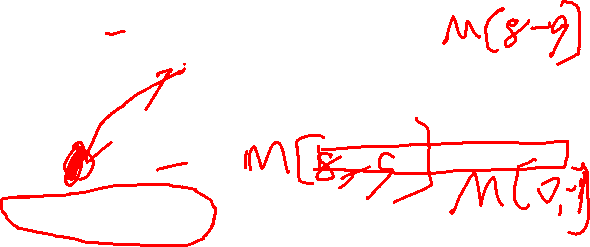 M[8-9]
M[8,5]
M[0,1]